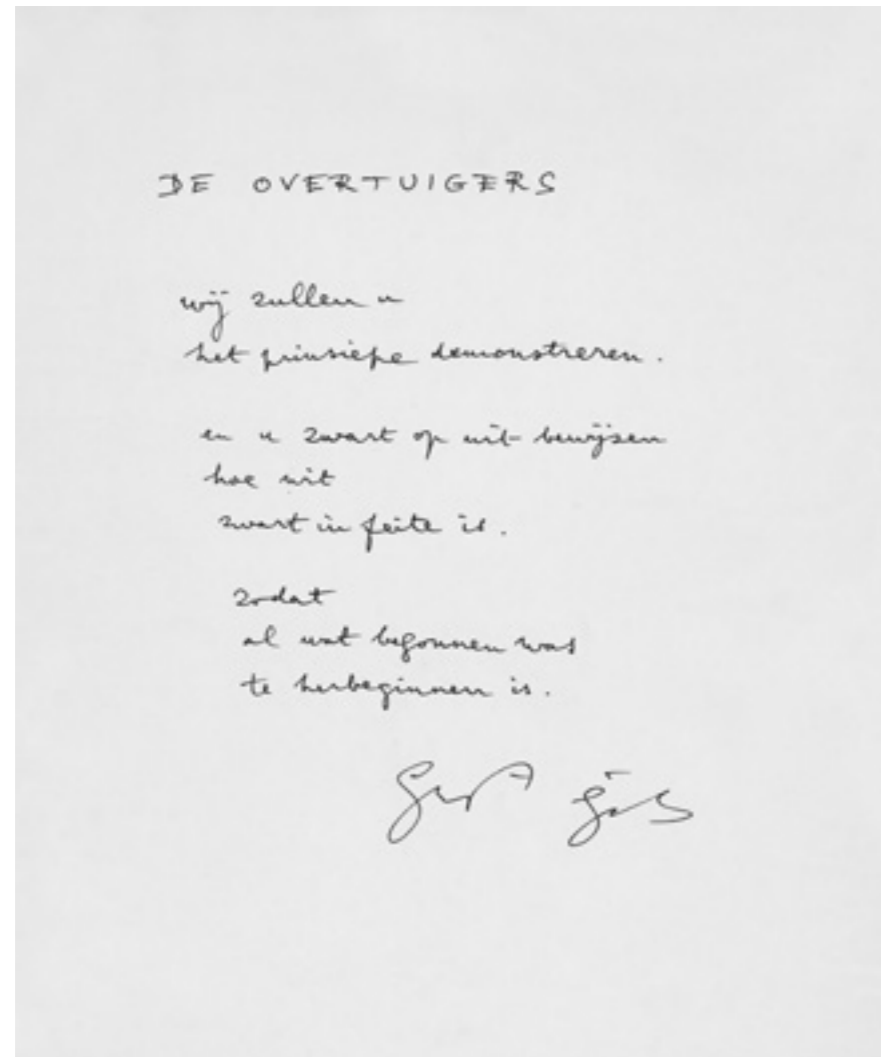 DE OVERTUIGERS
wij zullen u
het prinsiepe demonstreren.
en u zwart op wit bewijzen
hoe wit
zwart in feite is.
zodat
al wat begonnen was
te herbeginnen is.